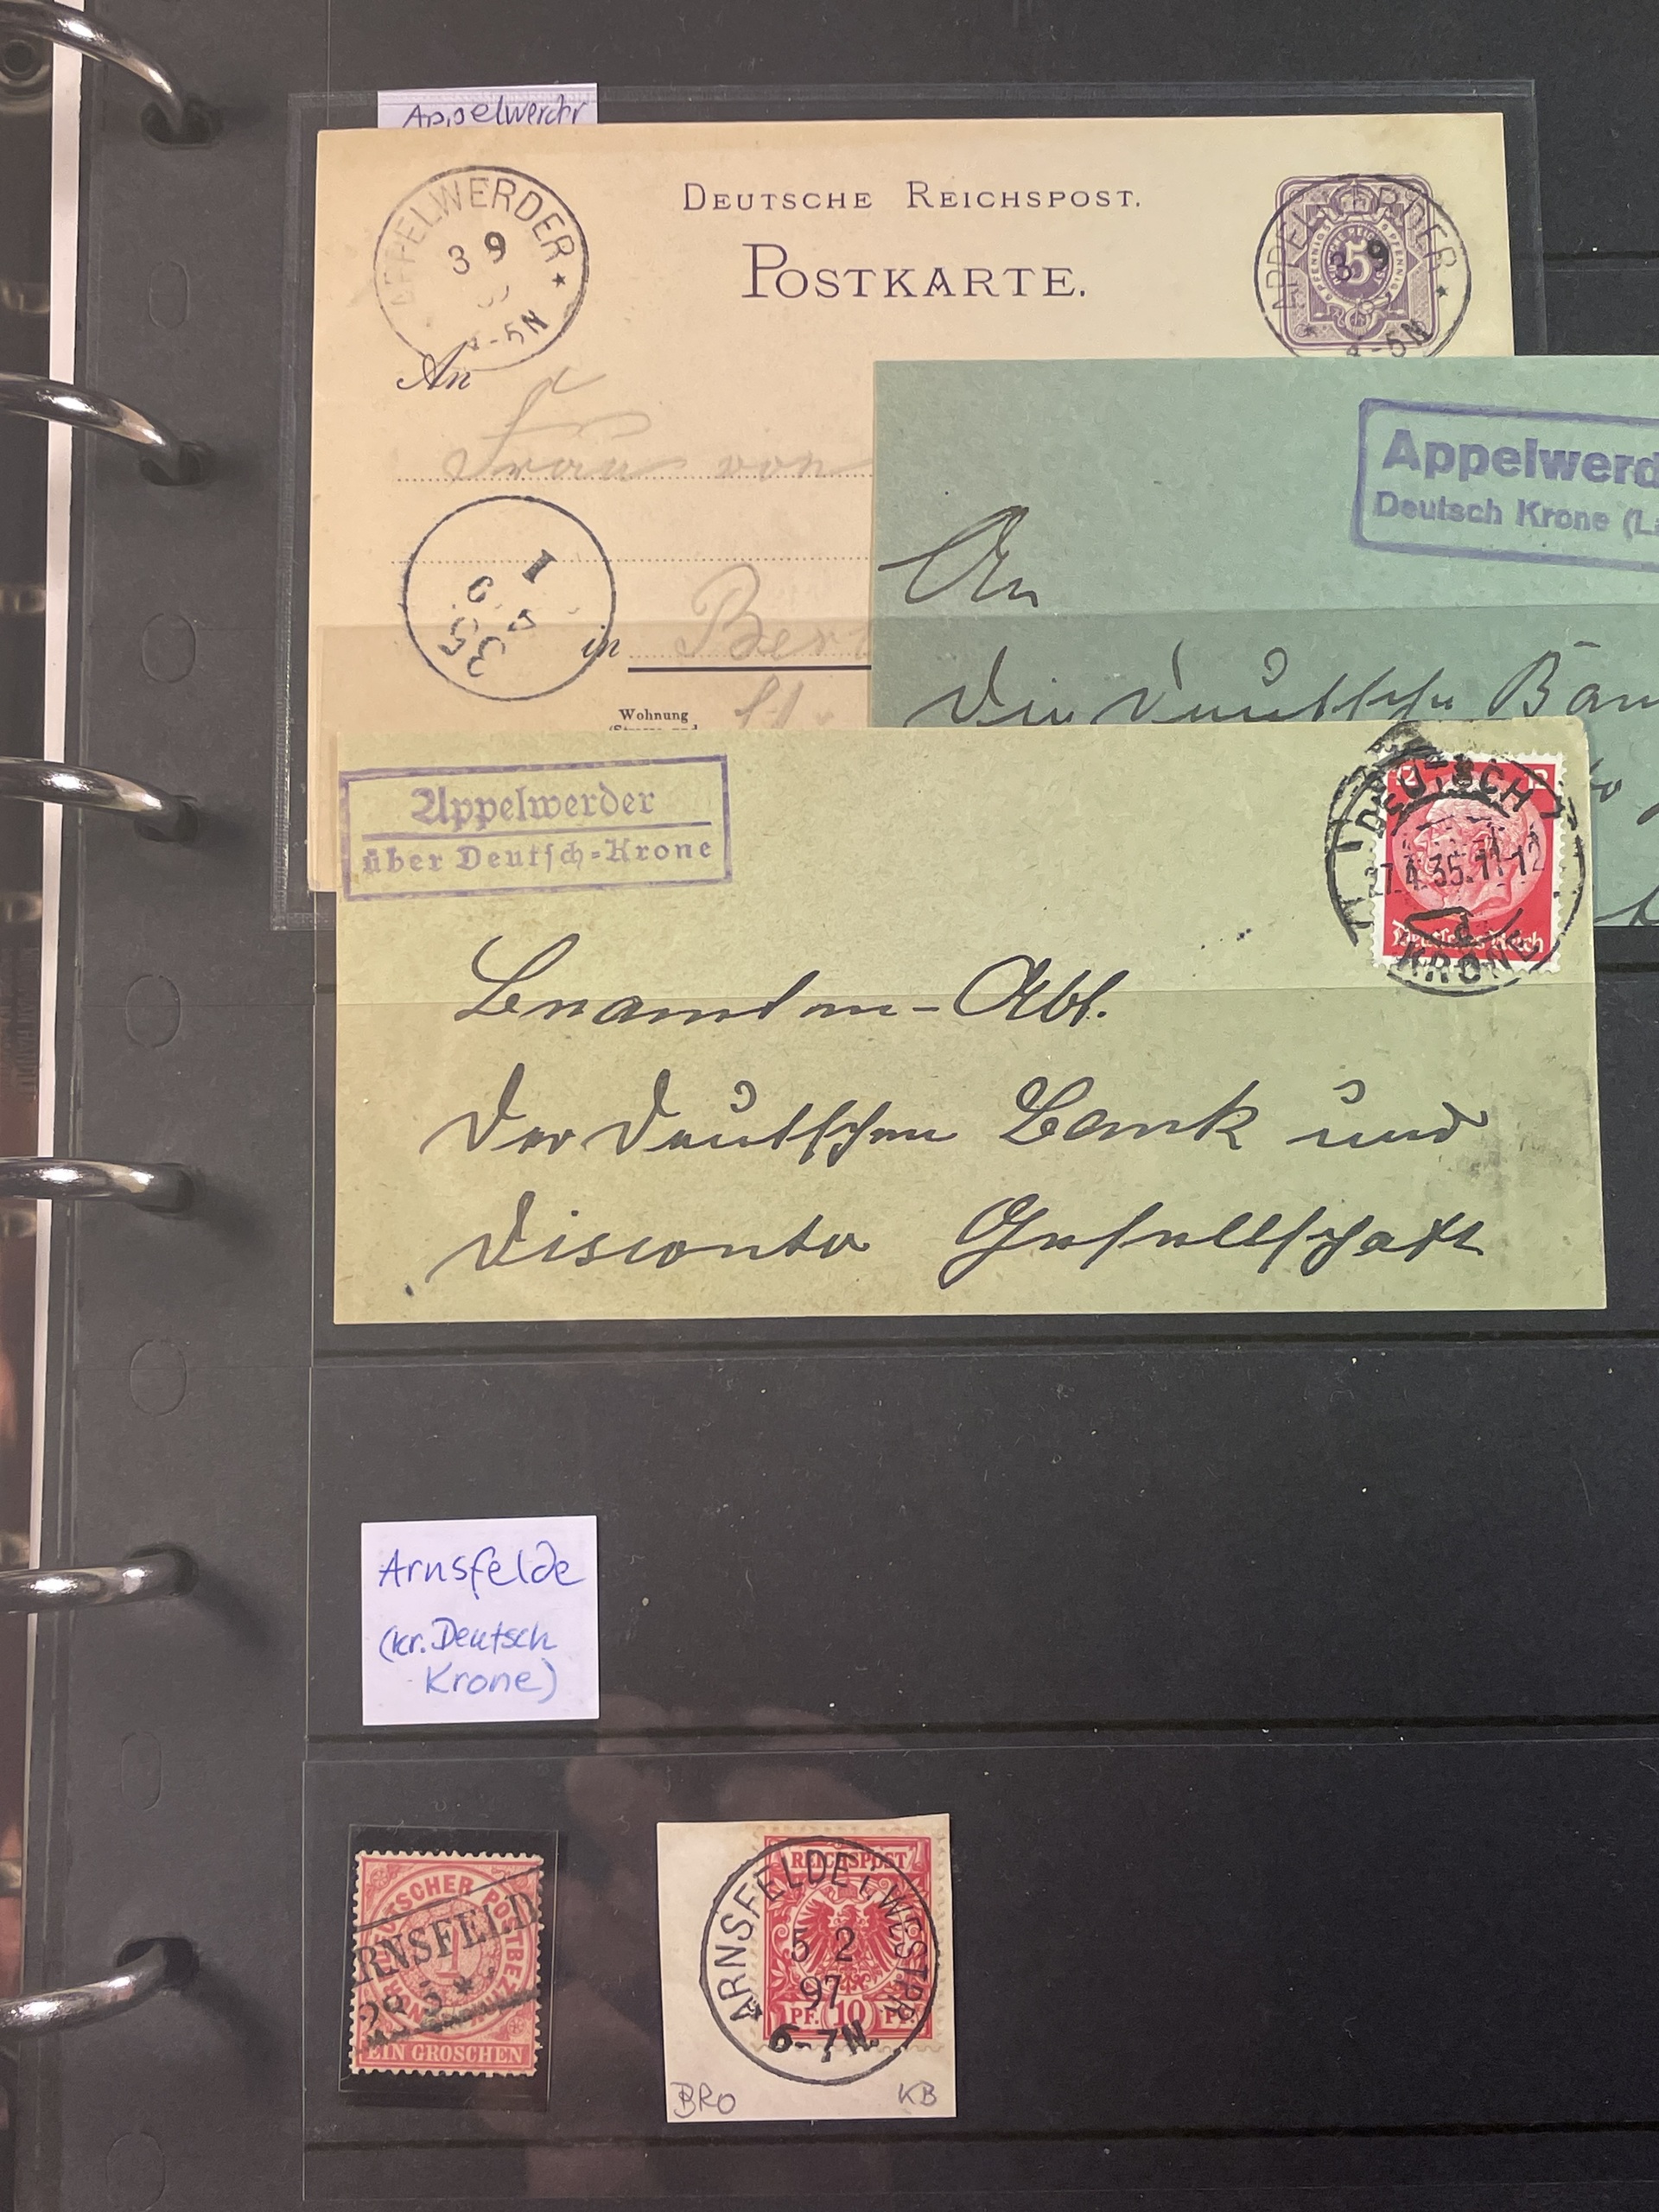 Appelwerder
APPELWERDER
3 9
4-5N
DEUTSCHE REICHSPOST.
POSTKARTE.
APPELWERDER
3 9
4-5N
5
An
Frau von
in
Wohnung
Appelwerd
Deutsch Krone (La
An
die Deutsche Ban
Appelwerder
über Deutsch-Krone
DEUTSCH
27.4.35.11-12
KRONE
Deutsches Reich
Beamten-Abt.
der Deutschen Bank und
Disconto Gesellschaft
Arnsfelde
(kr. Deutsch
Krone)
RNSFELD
28 3 *
1
EIN GROSCHEN
REICHSPOST
ARNSFELDE i. WESTPR.
5 2
97
6-7N.
PF. 10 PF.
BRO KB